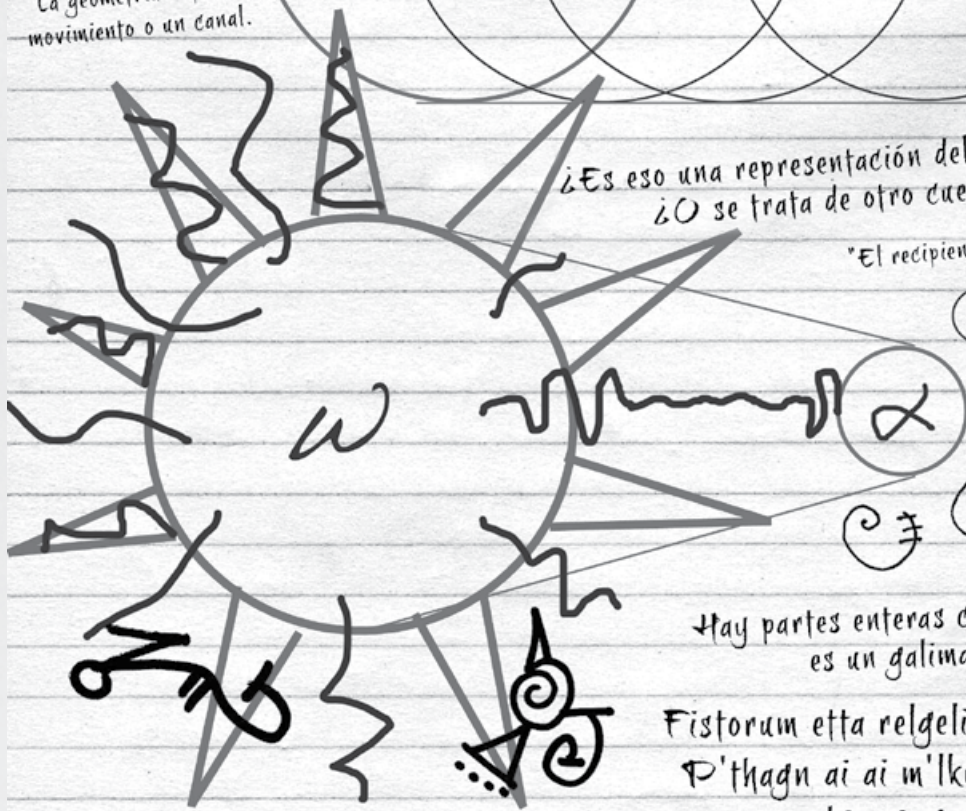 La geometría
movimiento o un canal.
¿Es eso una representación del
¿O se trata de otro cue
"El recipien
ω
α
Hay partes enteras
es un galima
Fistorum etta relgeli
P'thagn ai ai m'lk